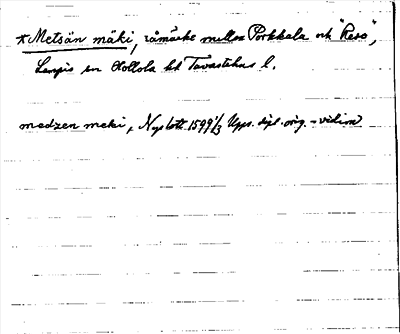 *Metsän mäki, råmärke mellan Porkkala och "Reso",
Lampis sn Hollola hd Tavastehus l.
medzen meki, Nyslott 1599 1/3 Upps. dipl. orig. - vidim